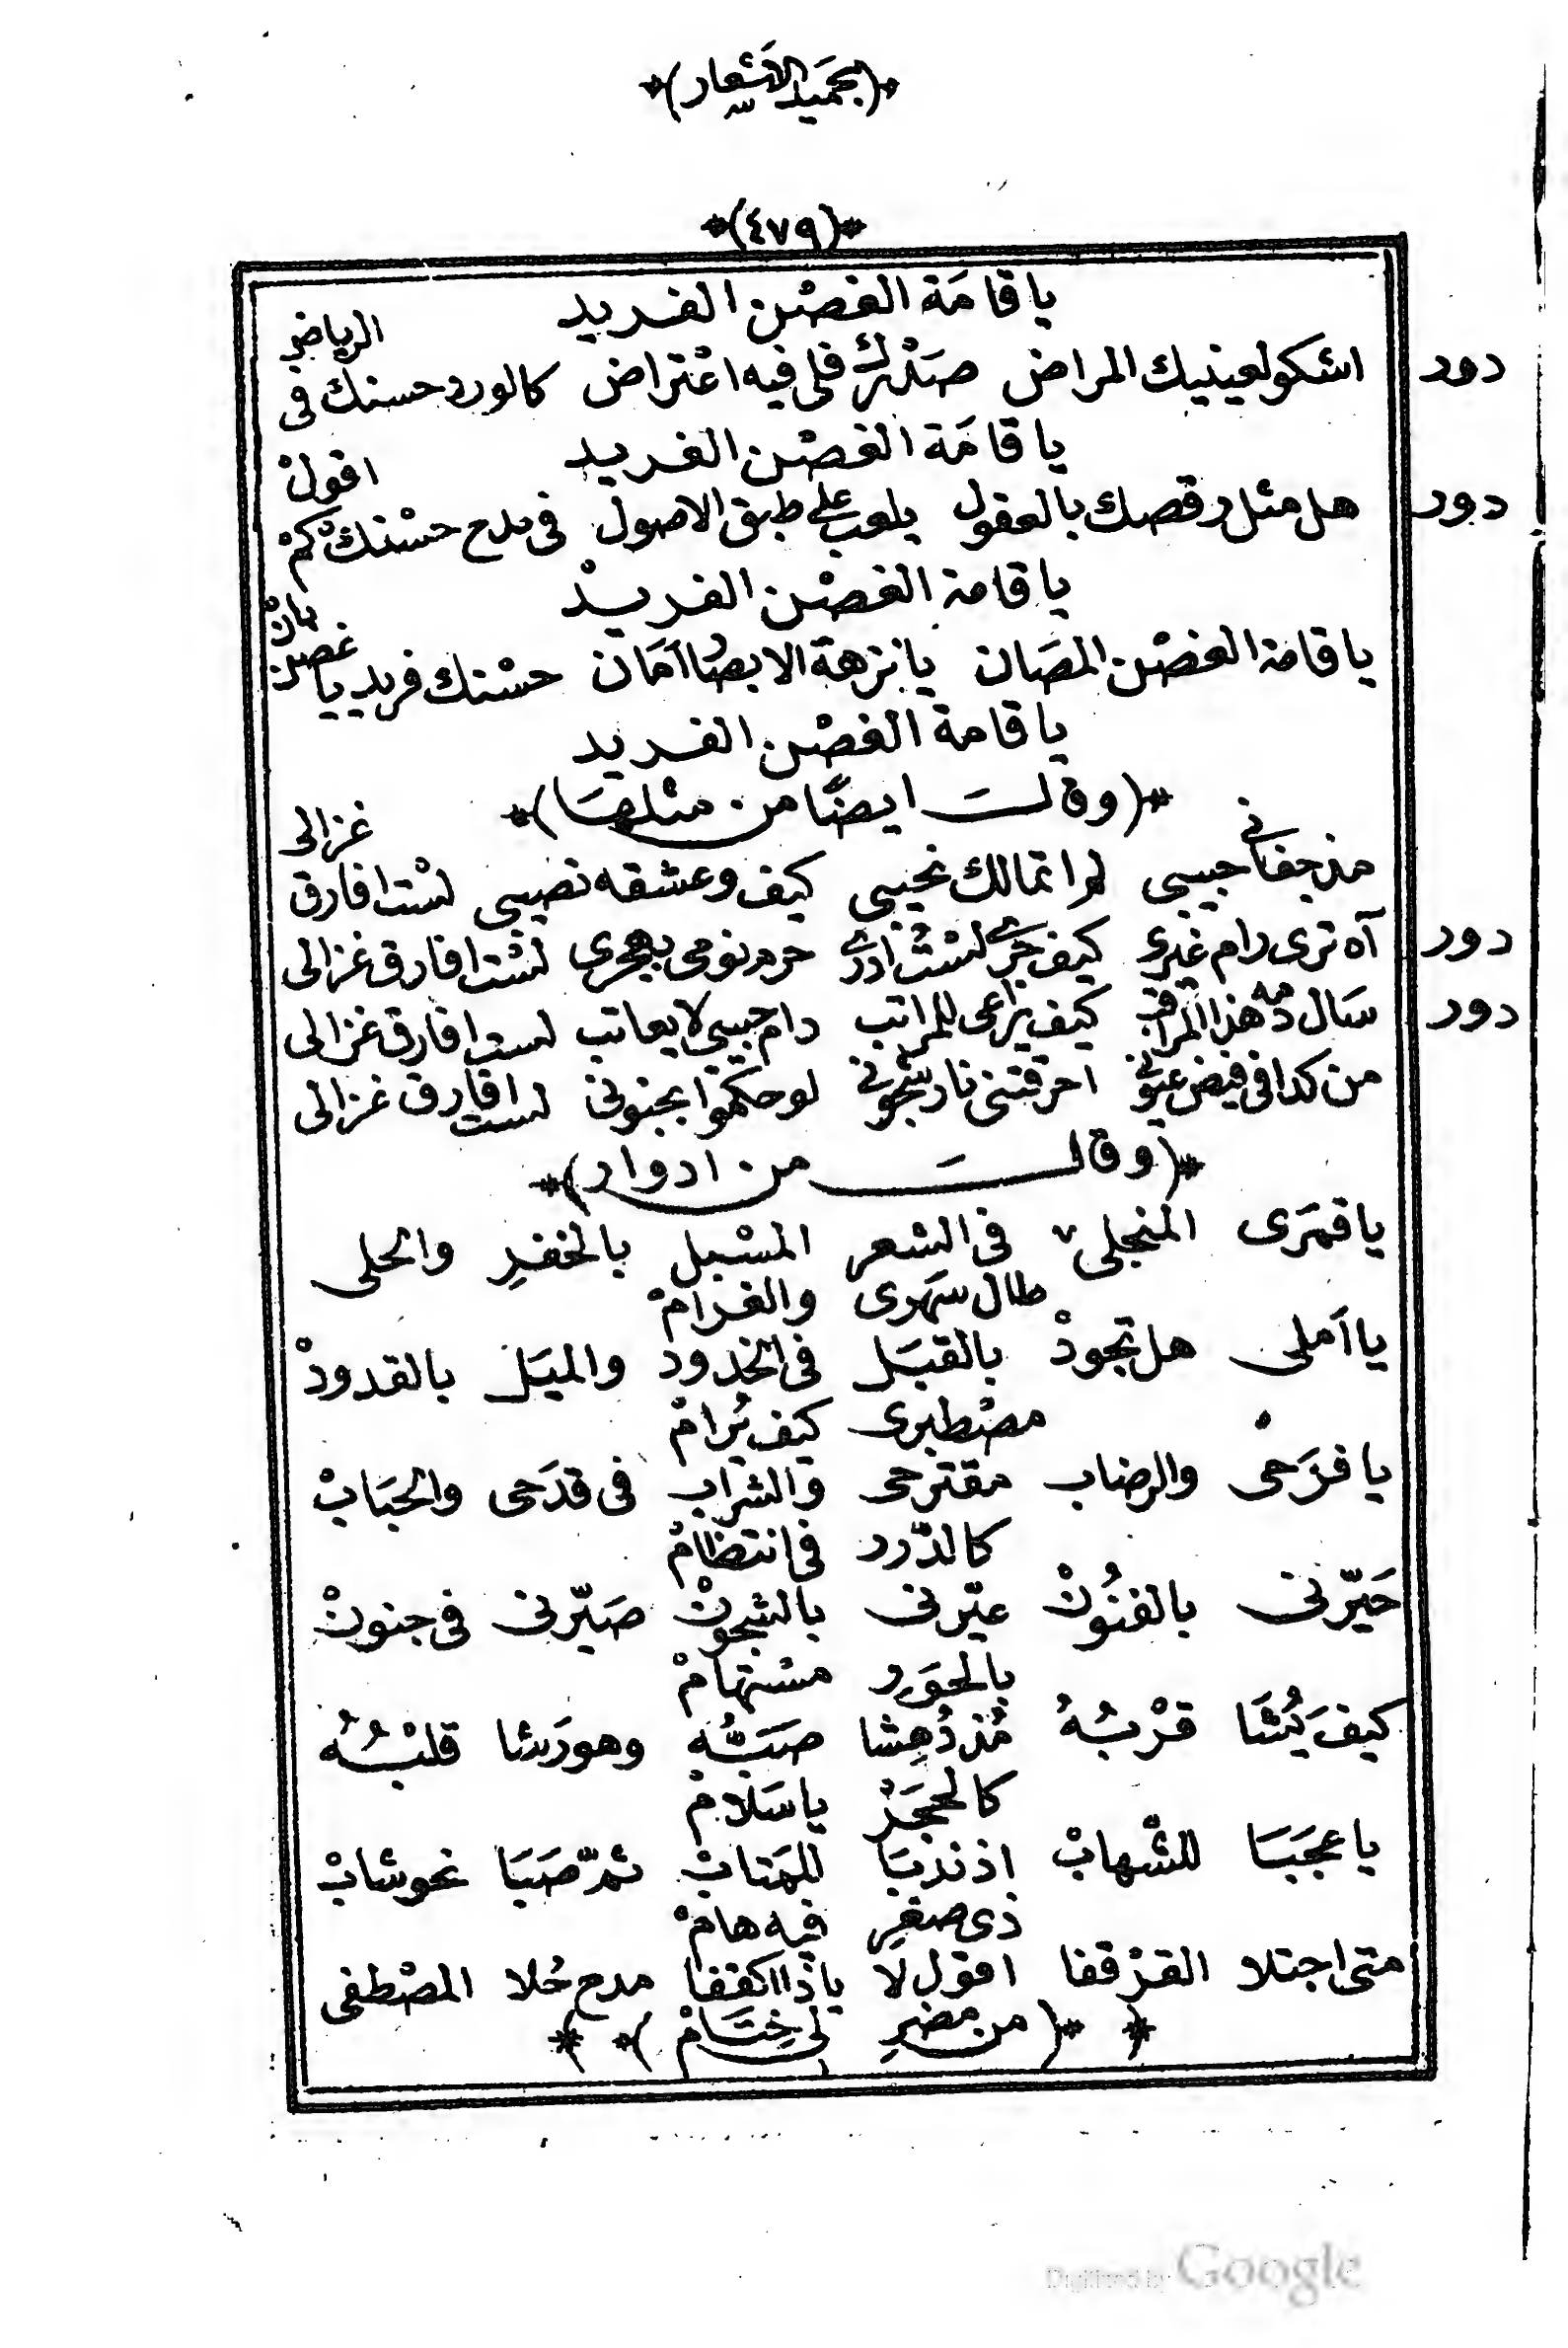 ﴿بحميد الاشعار﴾
﴿٤٧٩﴾
يا قامَة الغصْن الفريد
دور اشكو لعينيك المراض صَدْرك فلى فيه اعْتراض كالورد حسنك فى الرياض
يا قامَة الغصْن الفريد
دور هل مثل رقصك بالعقول يلعب على طبق الاصول فى مدح حسْنك كمْ اقولْ
يا قامة الغصْن الفريدْ
يا قامة الغصْن المصَان يا نزهة الابصار امَان حسْنك فريد يا غصن بانْ
يا قامة الغصْن الفريد
﴿وقالت ايضًا من مثلهَا﴾
مذ جفانى حبيبى لم اتمالك نحيبى كيف وعشقه نصيبى لسْت افارق غزالى
دور آه ترى رام غيرى كيف جرى لسْتُ ادرى حرم نومى بهجرى لسْت افارق غزالى
دور سَال دمه هذا المراقب كيف يراعى للمراتب دام حبيبى لا يعاتب لست افارق غزالى
من كدا فى فيض عيونى احرقتنى نار شجونى لو حكموا بجنونى لست افارق غزالى
﴿وقالت من ادوار﴾
يا قمرَى المنجلى فى الشعر المسْبل بالخفرِ والحلى
طال سَهرى والغرامْ
يا اَملى هل تجودْ بالقبَل فى الخدود والميَل بالقدودْ
مصْطبرى كيف يُرامْ
يا فرَحى والرضاب مقترحى والشراب فى قدَحى والحبَابْ
كالدّرر فى انتظامْ
حَيّرنى بالفنُونْ عيّرنى بالشجونْ صَيّرنى فى جنونْ
بالحوَرِ مسْتهامْ
كيفَ يُشَا قرْبُهُ مُذ دُهِشا صَبَّهُ وهو رَشا قلبْهُ
كالحجَرْ يا سَلامْ
يا عجَبَا للشّهابْ اذ ندبَا للمتابْ ثمّ صَبَا نحو شابْ
ذى صغرِ فيه هامْ
متى اجتلا القرْقفا اقول لا يا ذا اكففا مدح حُلا المصْطفى
﴿من مضرِ لى خِتَامْ﴾
Digitized by Google